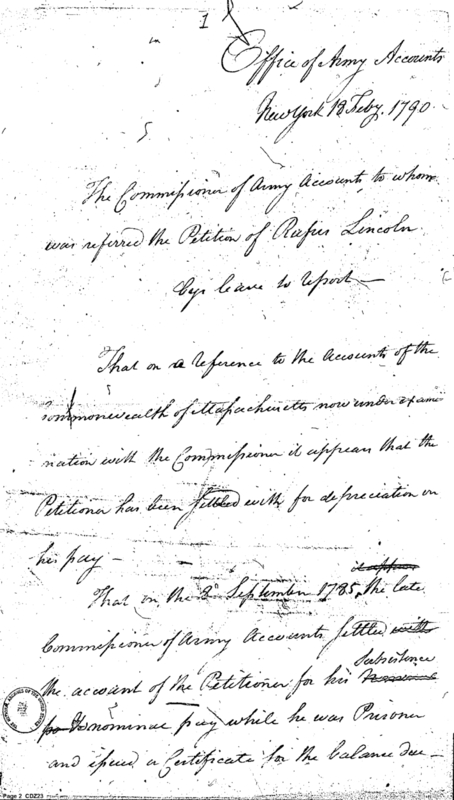 1
Office of Army Accounts
New York 12 Feby. 1790
The Commissioner of Army Accounts, to whom
was referred the Petition of Rufus Lincoln
begs leave to report—
That on a reference to the accounts of the
Commonwealth of Massachusetts now under exami
nation with the Commissioner it appears that the
Petitioner has been settled with for depreciation on
his pay—
it appears
That on the 2d September 1785, the late
Commissioner of Army Accounts settled with
Subsistence
the account of the Petitioner for his
nominal pay while he was Prisoner
and issued a Certificate for the balance due—
Page 2 CDZ23